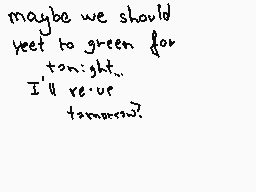 maybe we should
yeet to green for
tonight...
I'll re-ue
tomorrow?